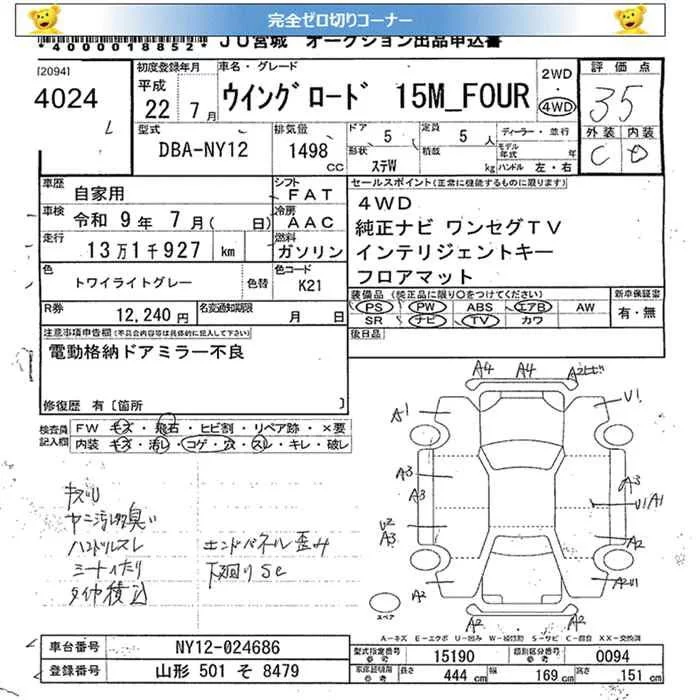 完全ゼロ切りコーナー
*4000018852* JU宮城 オークション出品申込書
[2094]
4024
初度登録年月
平成
22 7月
車名・グレード
ウイングロード 15M_FOUR
2WD
・
4WD
評価点
35
外装 内装
C D
型式
DBA-NY12
排気量
1498
CC
ドア
5
形状
ステW
定員
5 人
積載
kg
ディーラー・並行
モデル年式 年
ハンドル 左・右
車歴
自家用
シフト
FAT
車検
令和 9年 7月( 日)
冷房
AAC
走行
13万1千927 km
燃料
ガソリン
色
トワイライトグレー
色替
色コード
K21
R券
12,240円
名変通知期限
月 日
セールスポイント(正常に機能するものに限ります)
4WD
純正ナビ ワンセグTV
インテリジェントキー
フロアマット
装備品(純正品に限り○をつけてください)
PS PW ABS エアB AW
SR ナビ TV カワ
新車保証書
有・無
後日品
注意事項申告欄(不具合内容等は具体的に記入して下さい)
電動格納ドアミラー不良
修復歴 有〔箇所 〕
検査員記入欄
FW キズ・飛石・ヒビ割・リペア跡・×要
内装 キズ・汚れ・コゲ・穴・スレ・キレ・破レ
キズU
ヤニ汚れ臭い
ハンドルスレ
シートへたり
タイヤ積込
エンドパネル歪み
下廻りSC
A4 A4 A2ヒビ
A1 U1
A3 A3
A3
U1 A1
U2
A3 A2
A2 A2U1
A2 A2
スペア
A-キズ E-エクボ U-凹み W-補修跡 S-サビ C-腐食 XX-交換済
車台番号 NY12-024686
登録番号 山形 501 そ 8479
型式指定番号
参考
15190
類別区分番号
参考
0094
長さ 444 cm 幅 169 cm 高さ 151 cm